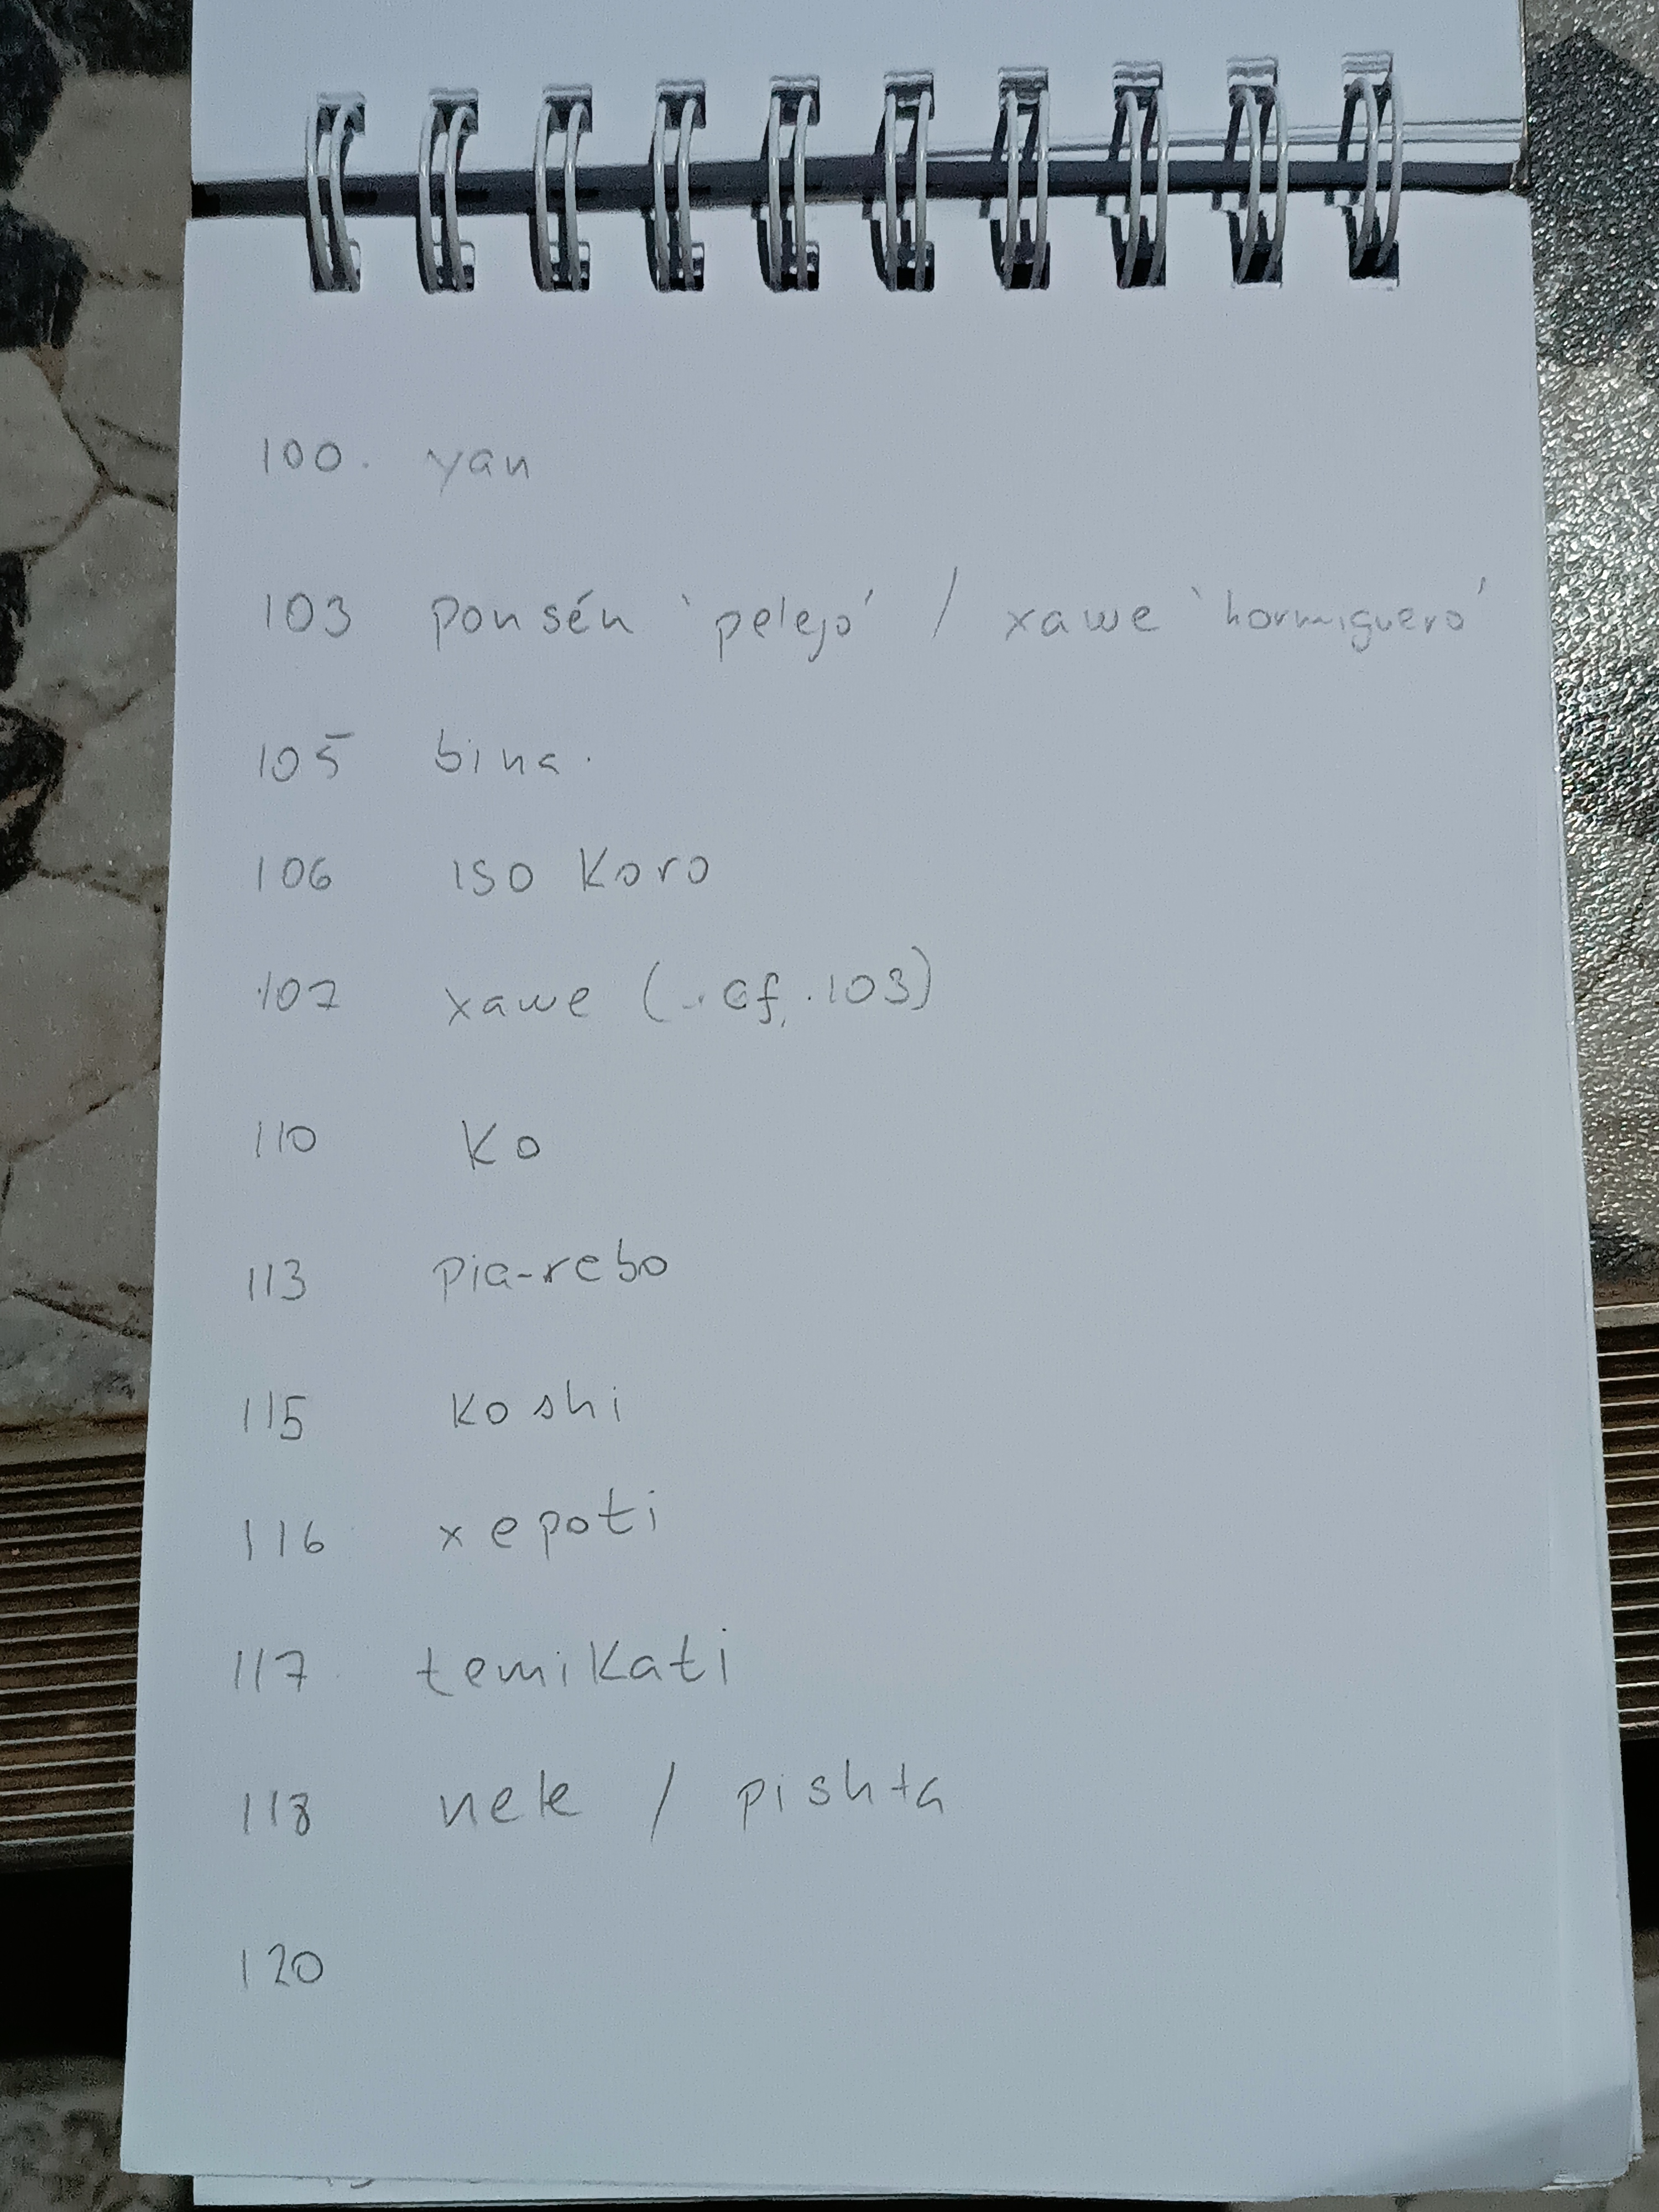 100. yan
103 ponsén 'pelejo' / xawe 'hormiguero'
105 bina.
106 iso koro
107 xawe (cf. 103)
110 ko
113 pia-rebo
115 koshi
116 xepoti
117 temikati
118 nete / pishta
120